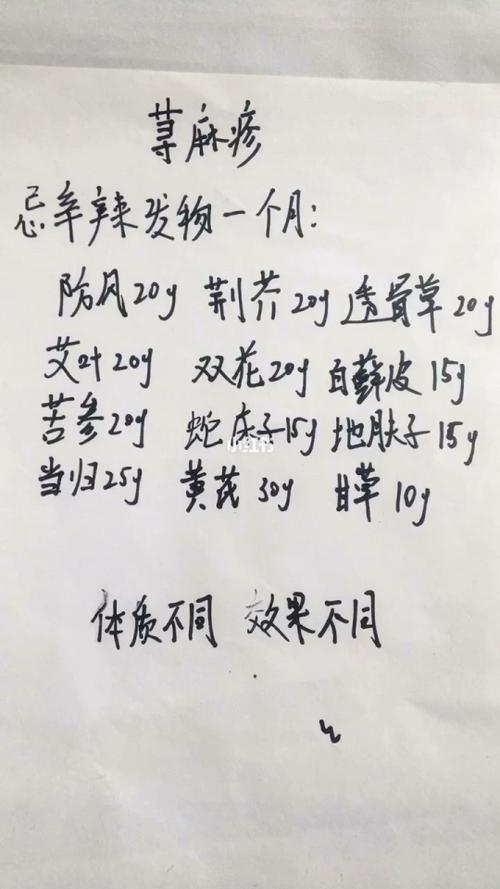 荨麻疹
忌辛辣发物一个月:
防风20g 荆芥20g 透骨草20g
艾叶20g 双花20g 白藓皮15g
苦参20g 蛇床子15g 地肤子15g
小红书
当归25g 黄芪30g 甘草10g
体质不同 效果不同